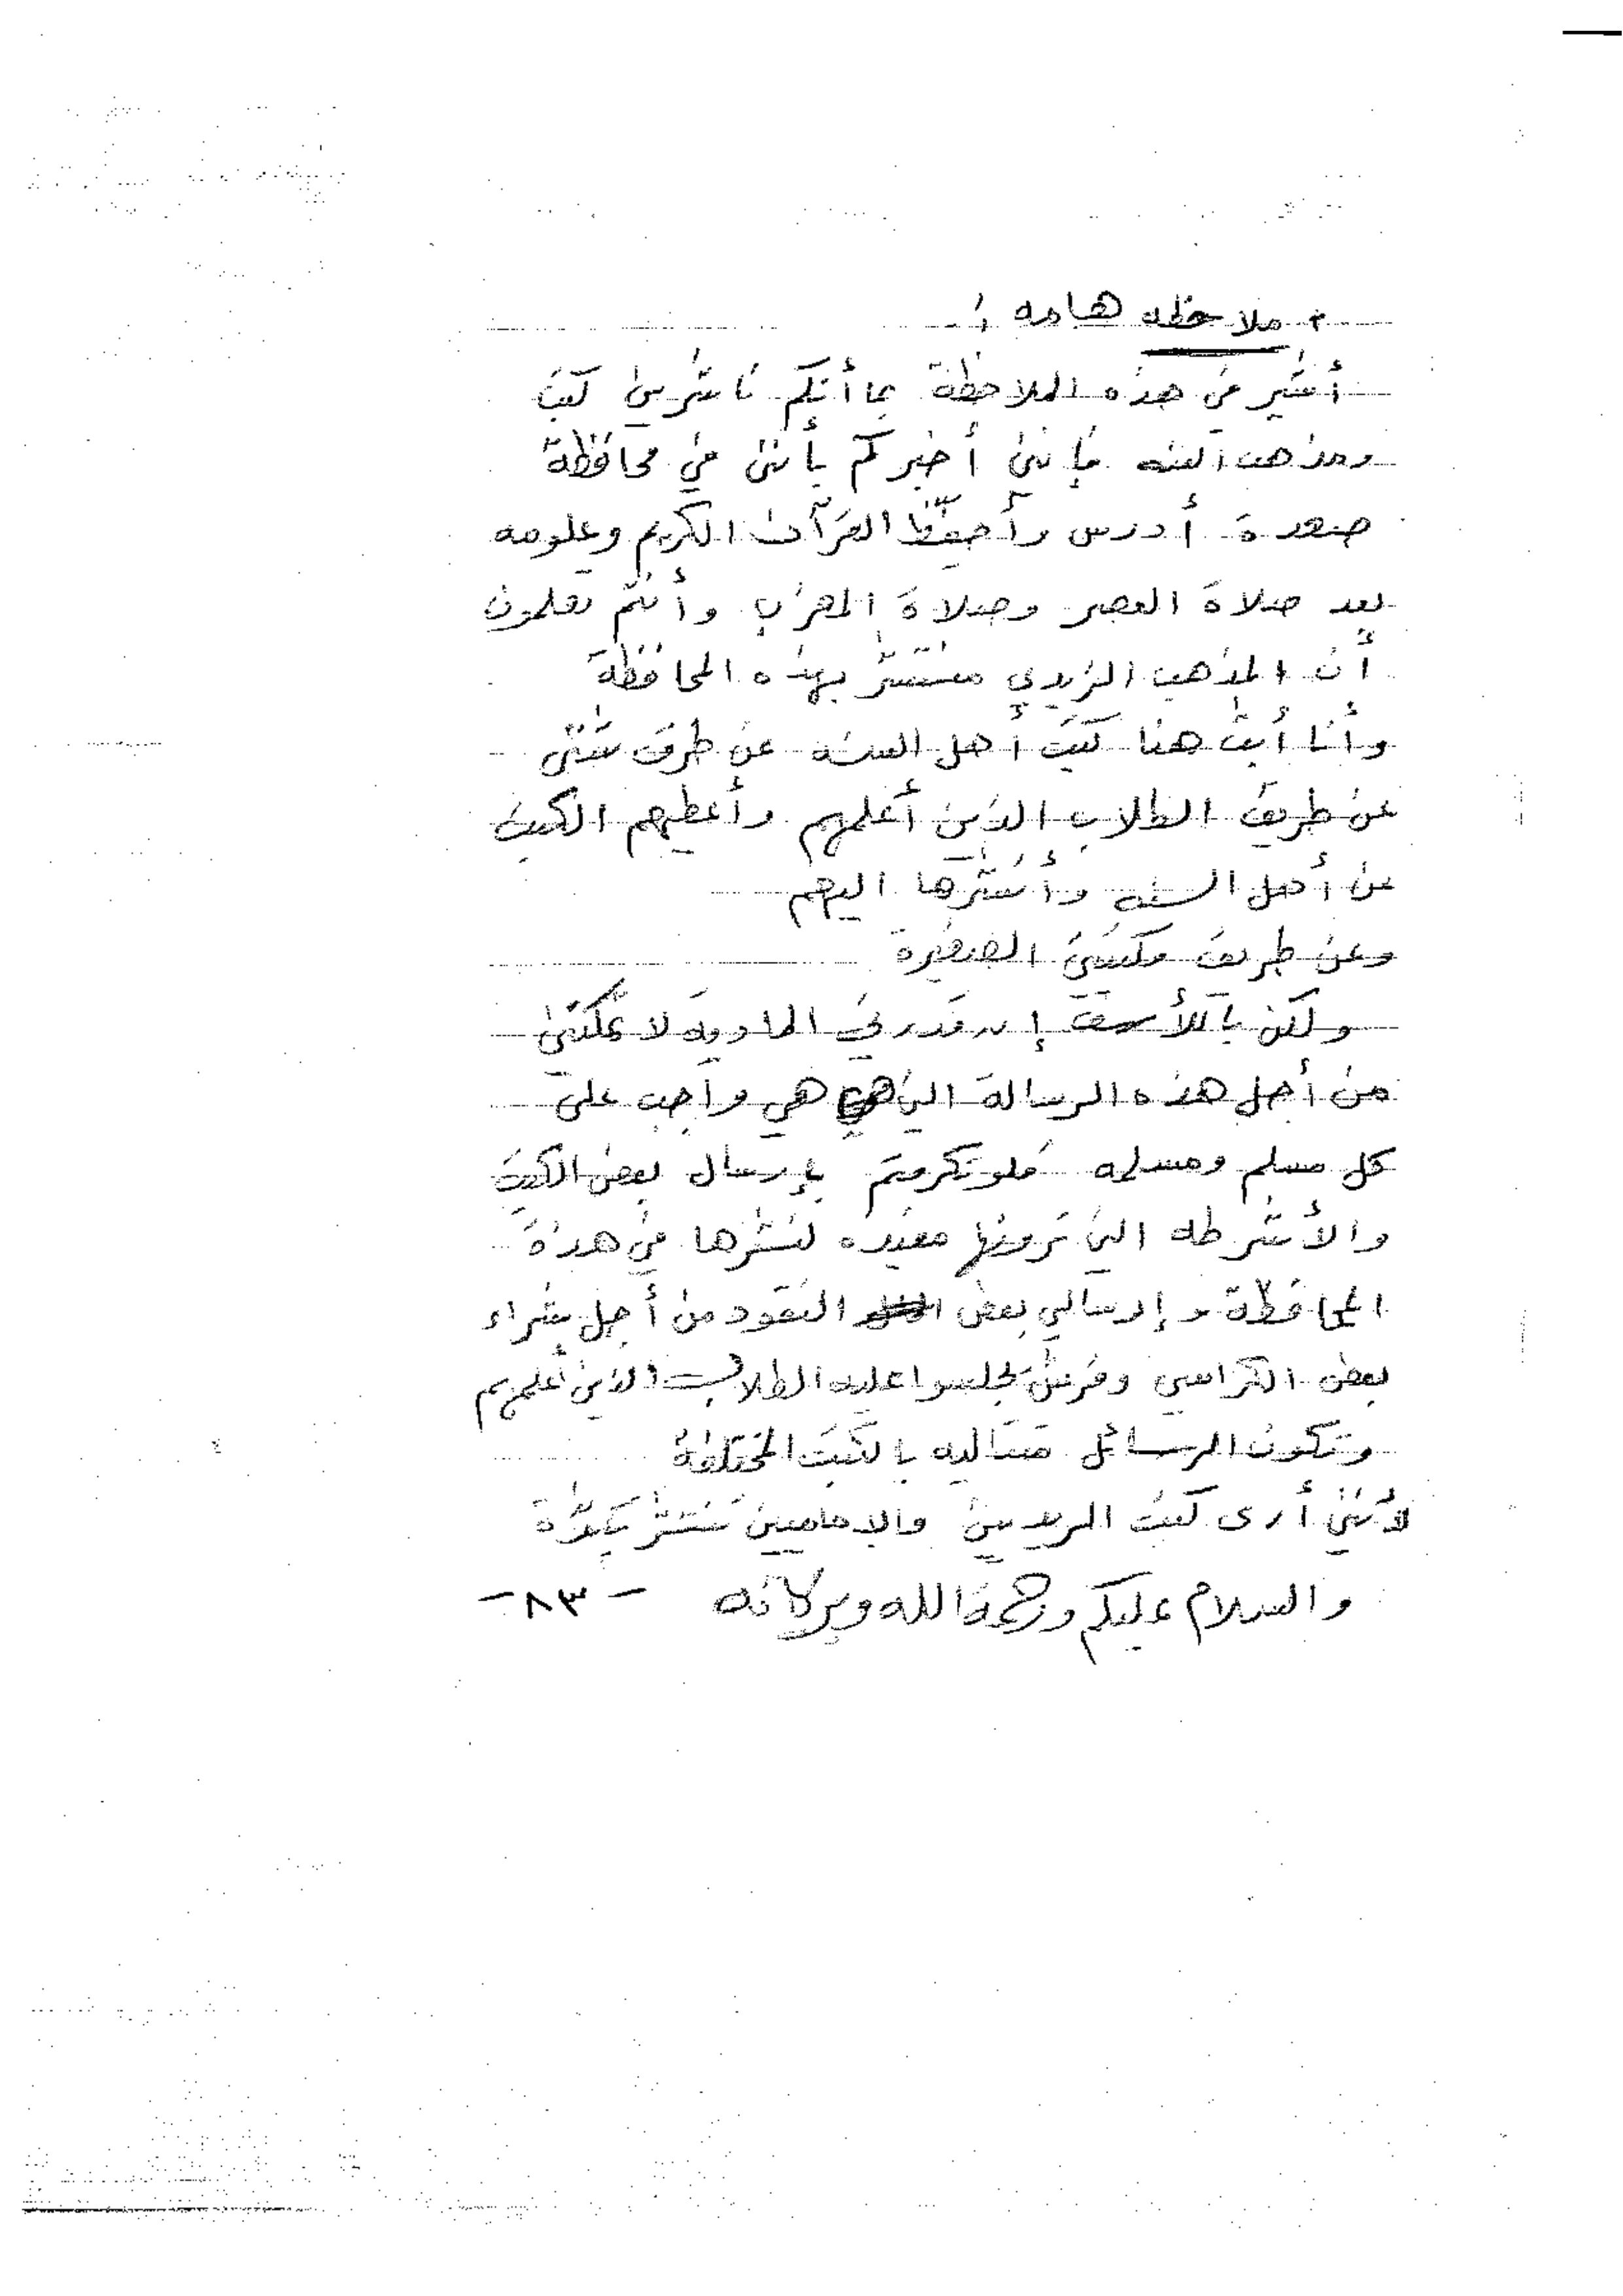 * ملاحظه هامه :
أشير في هذه الملاحظة بما أنكم ناشرين كتب
ومذهب السنه فإنني أخبركم بأنني في محافظة
صعدة أدرس وأحفّظ القرآن الكريم وعلومه
بعد صلاة العصر وصلاة المغرب وأنتم تعلمون
أن المذهب الزيدي منتشر بهذه المحافظة
وأنا أبث هنا كتب أهل السنه عن طرق شتى
عن طريق الطلاب الذين أعلمهم وأعطيهم الكتب
عن أهل السنه وأنشرها اليهم
وعن طريق مكتبتي الصغيرة
ولكن بالأسف إن قدرتي الماديه لا تمكنني
من أجل هذه الرسالة التي هي واجب على
كل مسلم ومسلمه فلو تكرمتم بإرسال بعض الكتب
والأشرطه التي ترونها مفيده لنشرها في هذة
المحافظة وإرسالي بعض النقود من أجل شراء
بعض الكراسي وفرش يجلسوا عليه الطلاب الذين أعلمهم
وتكون الرسائل متتاليه بالكتب المختلفة
لأنني أرى كتب الزيديين والإماميين تنتشر بكثرة
والسلام عليكم ورحمة الله وبركاته
- ٨٣ -